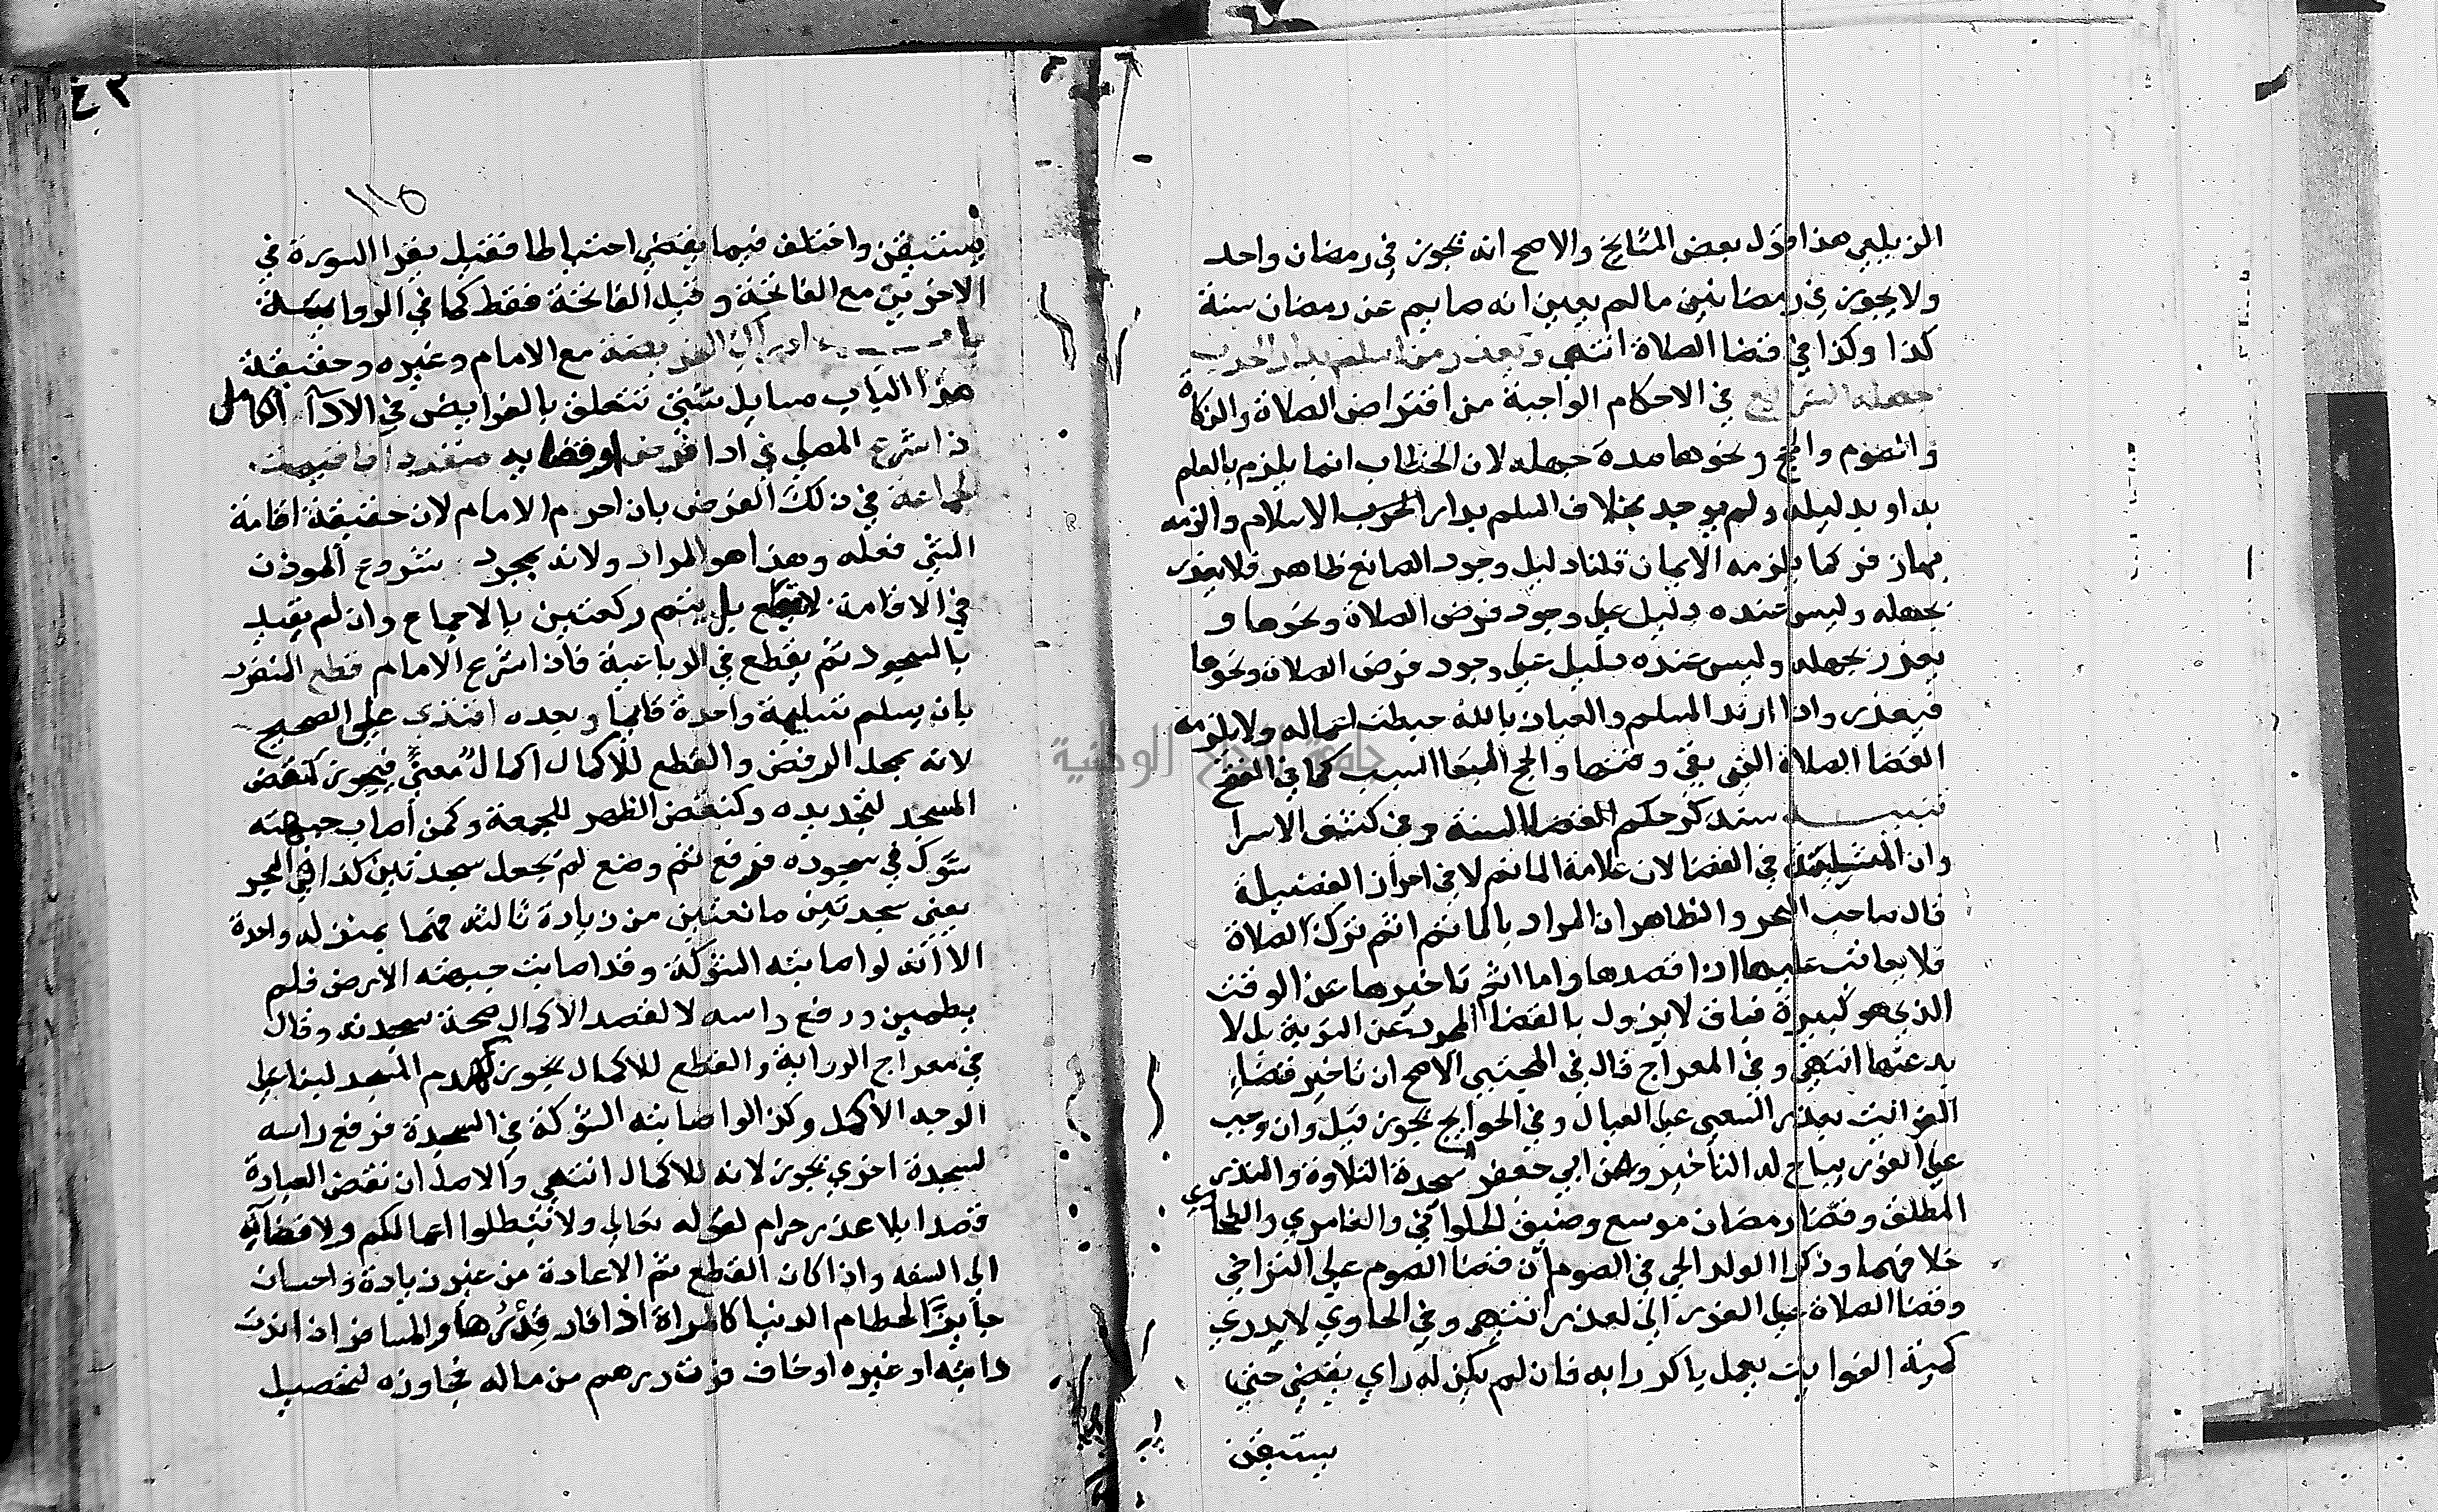 الزيلعي هذا قول بعض المشايخ والاصح انه يجوز في رمضان واحد
ولا يجوز في رمضانين مالم يعين انه صايم عن رمضان سنة
كذا وكذا في قضا الصلاة انتهى ويعذر من اسلم بدار الحرب
جهله الشرايع في الاحكام الواجبة من افتراض الصلاة والزكاة
والصوم والحج ونحوها مدة جهله لان الخطاب انما يلزم بالعلم
به او بدليله ولم يوجد بخلاف المسلم بدار الاسلام والزمه
بها زفر كما يلزمه الايمان قلنا دليل وجود الصانع ظاهر فلا يعذر
بجهله وليس عنده دليل على وجود فرض الصلاة ونحوها و
يعذر بجهله وليس عنده دليل على وجود فرض الصلاة ونحوها
فيعذر واذا ارتد المسلم والعياذ بالله حبطت اعماله ولا يلزمه
القضا الصلاة التي بقي وقتها والحج لبقا السبب كما في الفتح
تنبيه ستذكر حكم القضا السنة وفي كشف الاسرا
وان المثلية في القضا لان علامة الماثم لا في احراز الفضيلة
قال صاحب البحر والظاهر ان المراد بالماثم اثم ترك الصلاة
فلا يعاقب عليها اذا قصدها واما اثم تاخيرها عن الوقت
الذي هو كبيرة فباق لا يزول بالقضا المجرد عن التوبة بل لا
بد عنها انتهى وفي المعراج قال في المجتبي الاصح ان تاخير قضاء
الفوائت بعذر السعي على العيال وفي الحوايج يجوز قيل وان وجب
على الفور يباح له التاخير وعن ابي جعفر سجدة التلاوة والنذر
المطلق وقضا رمضان موسع وضيق الحلواني والعامري والطحاوي
خلافهما وذكر الولوالجي في الصوم ان قضا الصوم على التراخي
وقضا الصلاة على الفور الى لعذر انتهى وفي الحاوي لا يدري
كمية الفوايت يعمل باكبر رايه فان لم يكن له راي يقضي حتى
يستيقن
١١٥
يستيقن واختلف فيما يقضي احتياطا فقيل يقرا السورة في
الاخريين مع الفاتحة وقيل الفاتحة فقط كما في
باب ادراك الفريضة مع الامام وغيره وحقيقة
هذا الباب مسايل شتى تتعلق بالفرايض في الادآ الكامل
ذا شرع المصلي في ادا فرض او قضايه منفردا فاقيمت
الجماعة في ذلك الفرض بان احرم الامام لان حقيقة اقامة
الشي فعله وهذا هو المراد ولانه بمجرد شروع الموذن
في الاقامة لا يقطع بل يتم ركعتين بالاجماع وان لم يقيد
بالسجود ثم يقطع في الرباعية فاذا شرع الامام قطع المنفرد
بان يسلم تسليمة واحدة قايما وبعده اقتدي على الصحيح
لانه بمحل الرفض والقطع للاكمال اكمال معنىً فيجوز كنقض
المسجد لتجديده وكنقض الظهر للجمعة وكمن اصاب جبهته
شوك في سجوده فرفع ثم وضع لم يجعل سجدتين كذا في البحر
يعني سجدتين مانعتين من زيادة ثالثة فهما بمنزله واحدة
الا انه لو اصابته الشوكة وقد اصابت جبهته الارض فلم
يطمين ورفع راسه لا لقصد الاكمال صحة سجدته وقال
في معراج الدراية والقطع للاكمال يجوز كهدم المسجد لبنا على
الوجه الاكمل وكذا لو اصابته الشوكة في السجدة فرفع راسه
لسجدة اخري يجوز لانه للاكمال انتهى والاصل ان نقض العبادة
قصدا بلا عذر حرام لقوله تعالي ولا تبطلوا اعمالكم ولا قضآيه
الى السفه واذا كان القطع ثم الاعادة من غير زيادة واحسان
جايزا لحطام الدنيا كالمراة اذا فار قِدْرُها والمسافر اذا ندت
دابته او غيره او خاف فوت درهم من ماله فجاوزه لتحصيل
جامعة النجاح الوطنية